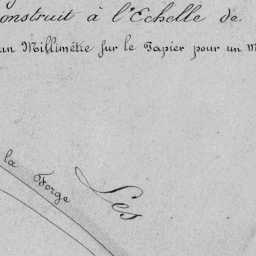 onstruit à l'Echelle de
un Millimétre sur le Papier pour un
la Forge
Les